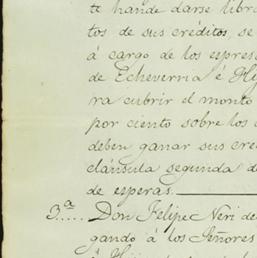 te hande darse libra
tos de sus créditos, se
á cargo de los espres
de Echeverria é Hij
ra cubrir el monto
por ciento sobre los
deben ganar sus cre
cláusula segunda d
de esperas.
3.ª Don Felipe Neri de
gando á los Señores